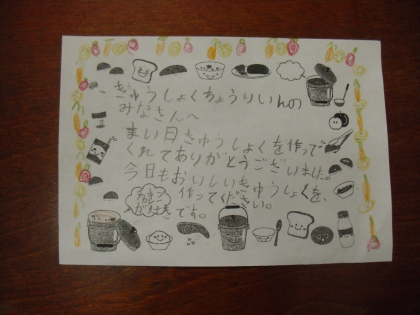 きゅうしょくちょうりいんの
みなさんへ
まい日きゅうしょくを作って
くれてありがとうございました。
今日もおいしいきゅうしょくを、
作ってください。
です。